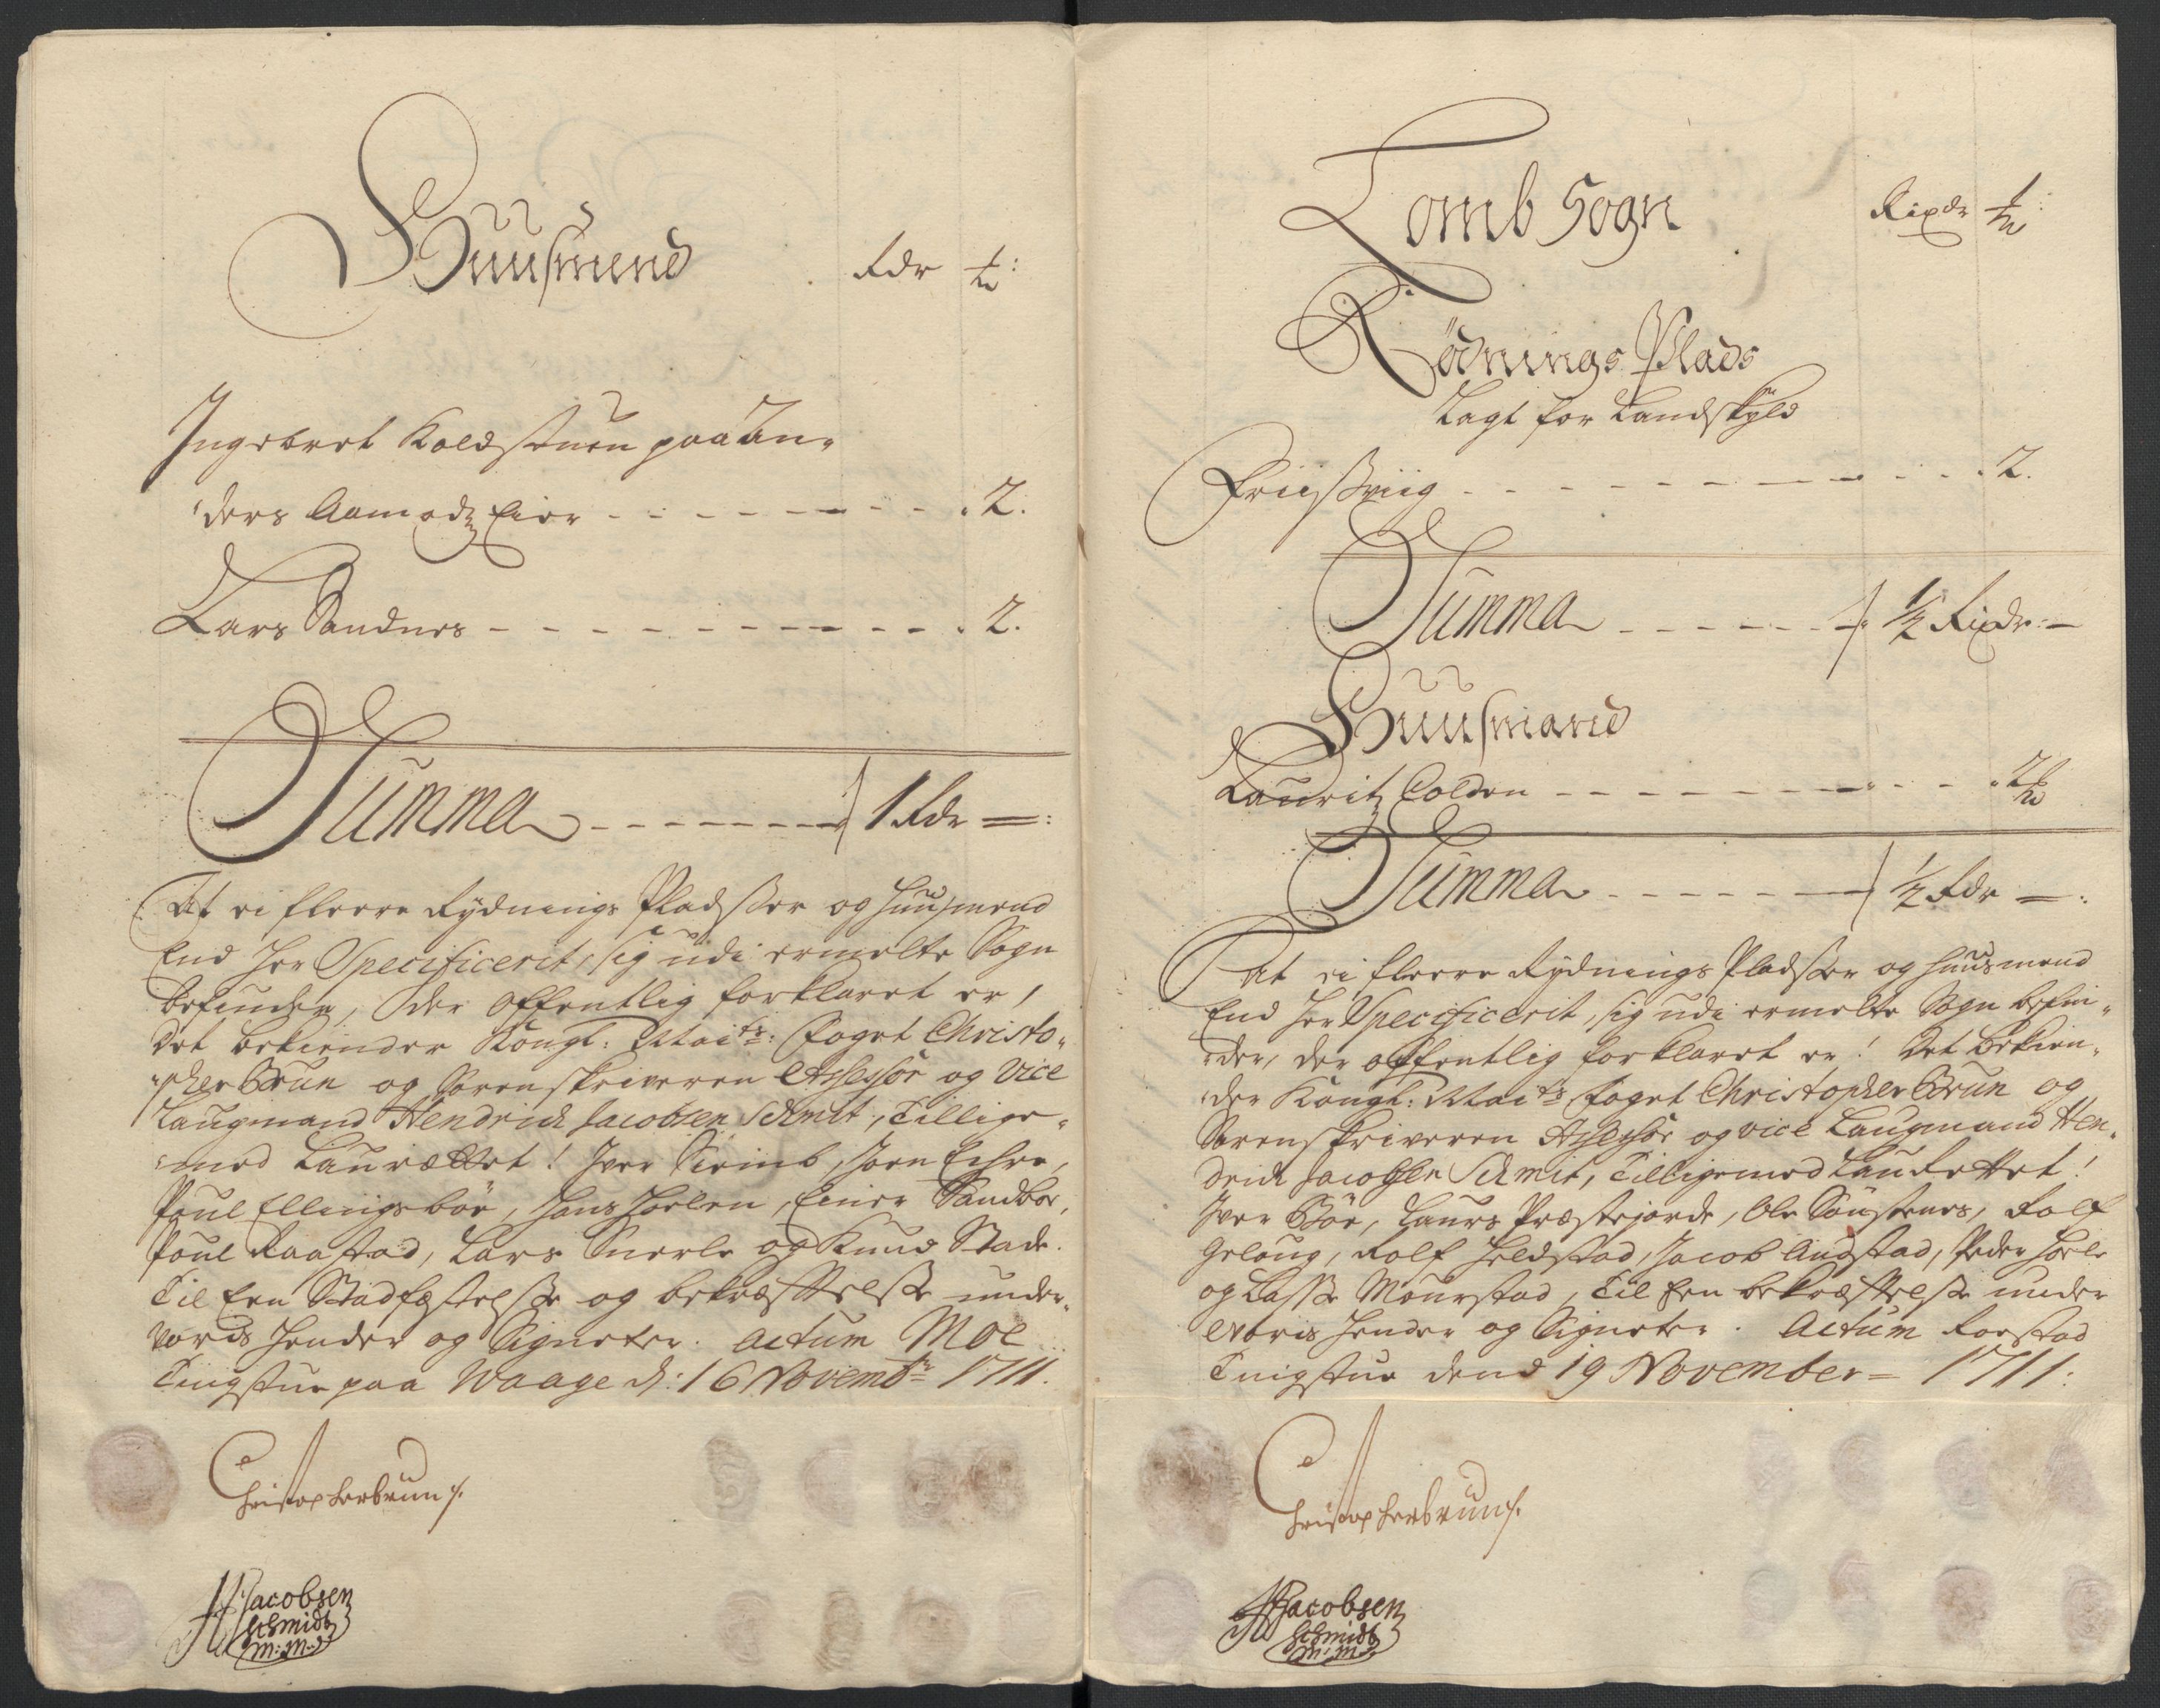 Huusmend Rdr ½:
Ingebret Koldstuen paa An-
ders Aamodtz Eier - - - - - - - - - .2.
Lars Sandnes - - - - - - - - - - .2.
Summa - - - - - - - 1 Rdr =:
At ei fleere Rydnings Pladsser og Huusmend
End her Specificerit, sig udi ermelte Sogn
befinder, der offentlig forklaret er,
Det bekiender Kongl: Maits: Foget Christo-
-pher Brun og Sorenskriveren Assessor og Vice
Laugmand Hendrich Jacobsen Schmit, Tillige-
-med Laurættet! Iver
Poul Ellingsbøe, Hans Horlen, Einer Sandboe,
Poul Raastad, Lars Snerle og Knud Stade.
Til Een Stadfæstelsse og bekræfftelsse under
vores Hender og Signeter. Actum Moe
Tingstue paa Waage d: 16 Novembr 1711.
Christopher brun
HJacobsen
Schmidt
m:m:
Lomb Sogn Rixdr ½
Rødnings Plads
Lagt for Landskyld
Friisvig - - - - - - - - - - .2.
Summa - - - - - - ½ Rixdr: -
Huusmand
Lauritz Colden - - - - - - - - - .2
Summa - - - - - - - ½ Rdr =:
At ei fleere Rydnings Pladsser og Huusmend
End her Specificerit, sig udi ermelte Sogn befin-
-der, der offentlig forklaret er! Det bekien-
-der Kongl: Maits Foget Christopher Brun og
Sorenskriveren Assessor og vice Laugmand Hen-
drich Jacobsen Schmit, Tilligemed Laurettet!
Iver Bøe, Laurs Præstejorde, Ole Sønstenes, Rolf
Geloug, Rolf Heldstad, Jacob Andstad, Peder Horle
og Lasse Mourstad, Til Een bekræfftelsse under
voris Hender og Signeter. Actum Forstad
Tingstue dend 19 November = 1711:
Christopher brun
HJacobsen
Schmidt
m:m: